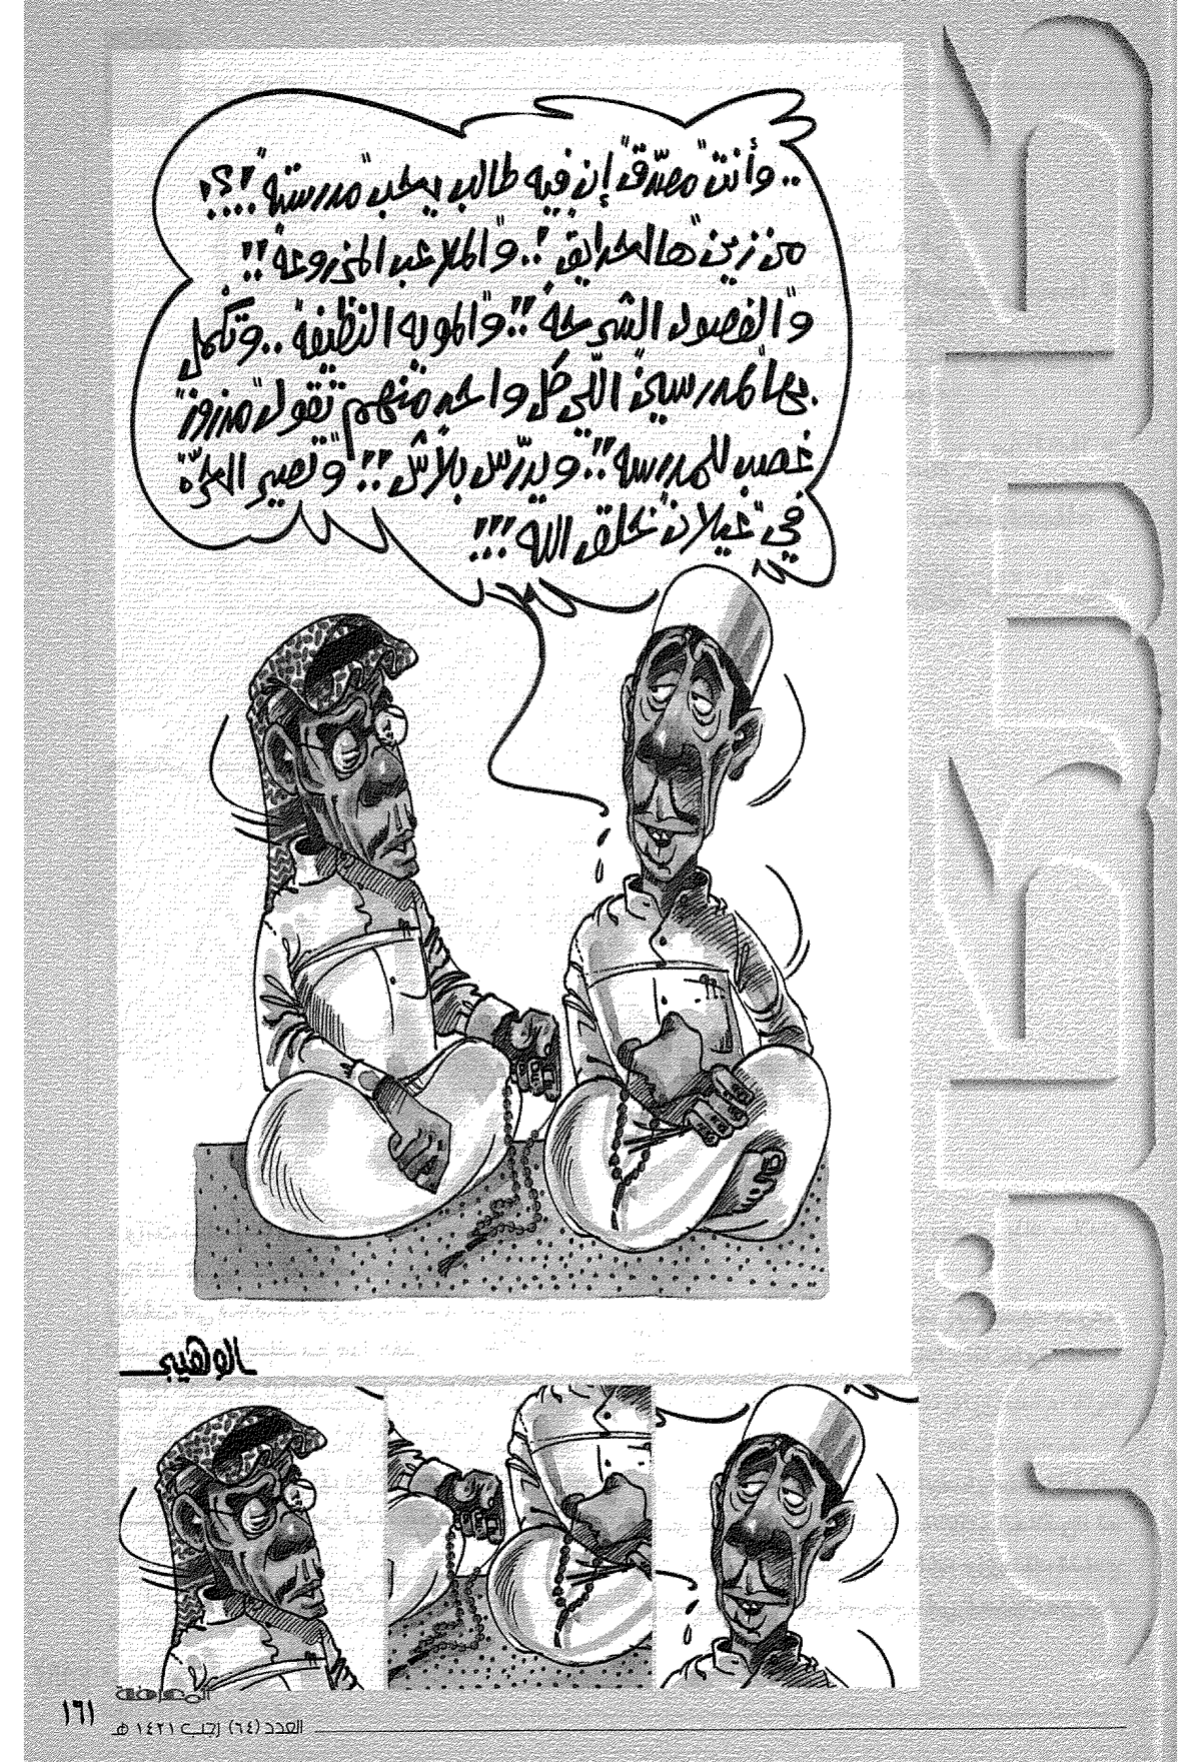 .. وأنت "مصدّق" إن فيه طالب يحب "مدرسته"؟!....
من زين "هالحدايق"!.. و"الملاعب المزروعة"!!
و"الفصول الشرحة"!!.. و"المويه النظيفة".. وتكمل
بها "المدرسين" اللّي كل واحد منهم "تقول" "مدزوز"
غصب للمدرسة"!!.. ويدرّس بلاّش"!!.. و"تصير الحرّة
في" عيلان "خلق الله!!!..
الوهيبي
المعرفة
العدد (٦٤) رجب ١٤٢١ هـ
١٦١